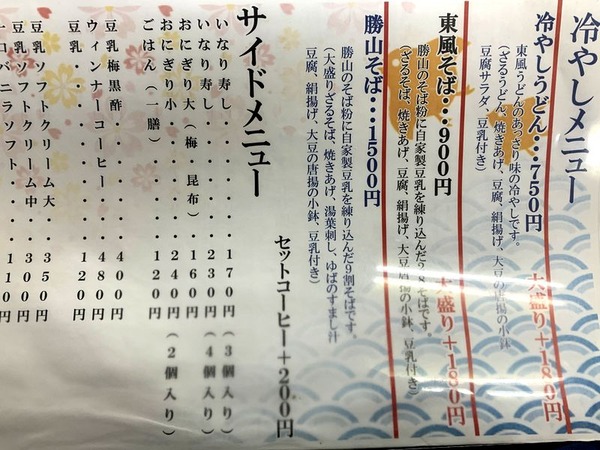 冷やしメニュー
冷やしうどん・・・750円
大盛り+180円
東風うどんのあっさり味の冷やしです。
(ざるうどん、焼きあげ、豆腐、絹揚げ、大豆の唐揚の小鉢
豆腐サラダ、豆乳付き)
東風そば・・・900円
大盛り+180円
勝山のそば粉に自家製豆乳を練り込んだ28そばです。
(ざるそば、焼きあげ、豆腐、絹揚げ、大豆唐揚の小鉢、豆乳付き)
勝山そば・・・1500円
勝山のそば粉に自家製豆乳を練り込んだ9割そばです。
(大盛りざるそば、焼きあげ、湯葉刺し、ゆばのすまし汁
豆腐、絹揚げ、大豆の唐揚の小鉢、豆乳付き)
セットコーヒー+200円
サイドメニュー
いなり寿し・・・・・170円(3個入り)
いなり寿し・・・・・230円(4個入り)
おにぎり大(梅・昆布)・160円
おにぎり小・・・・・240円(2個入り)
ごはん(一膳)・・・・120円
豆乳梅黒酢・・・・・400円
ウィンナーコーヒー・・480円
豆乳・・・・・・・120円
豆乳ソフトクリーム大・350円
豆乳ソフトクリーム中・300円
バニラソフト・・110円